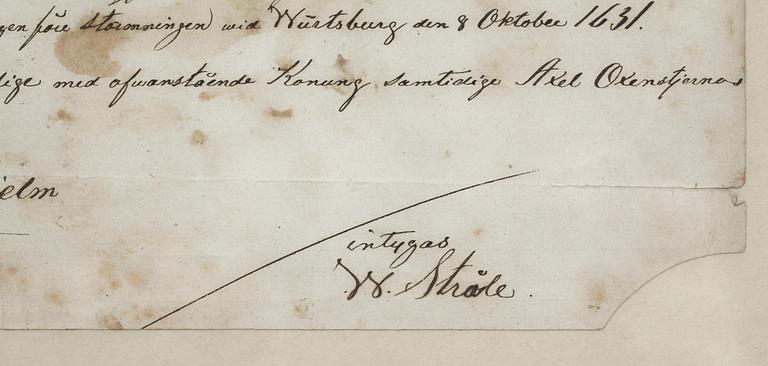 gen före stormningen) wid Würtsburg den 8 Oktober 1631.
dige med ofwanstående Konung samtidige Axel Oxenstjernas
elm
intygas
W. Stråle.